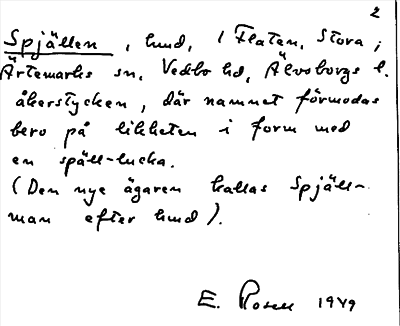 2
Spjällen, hmd, i Flaten, Stora,
Ärtemarks sn, Vedbo hd, Älvsborgs l.
åkerstycken, där namnet förmodas
bero på likheten i form med
en späll-lucka.
(Den nye ägaren kallas Spjäll-
man efter hmd).
E. Rosell 1949